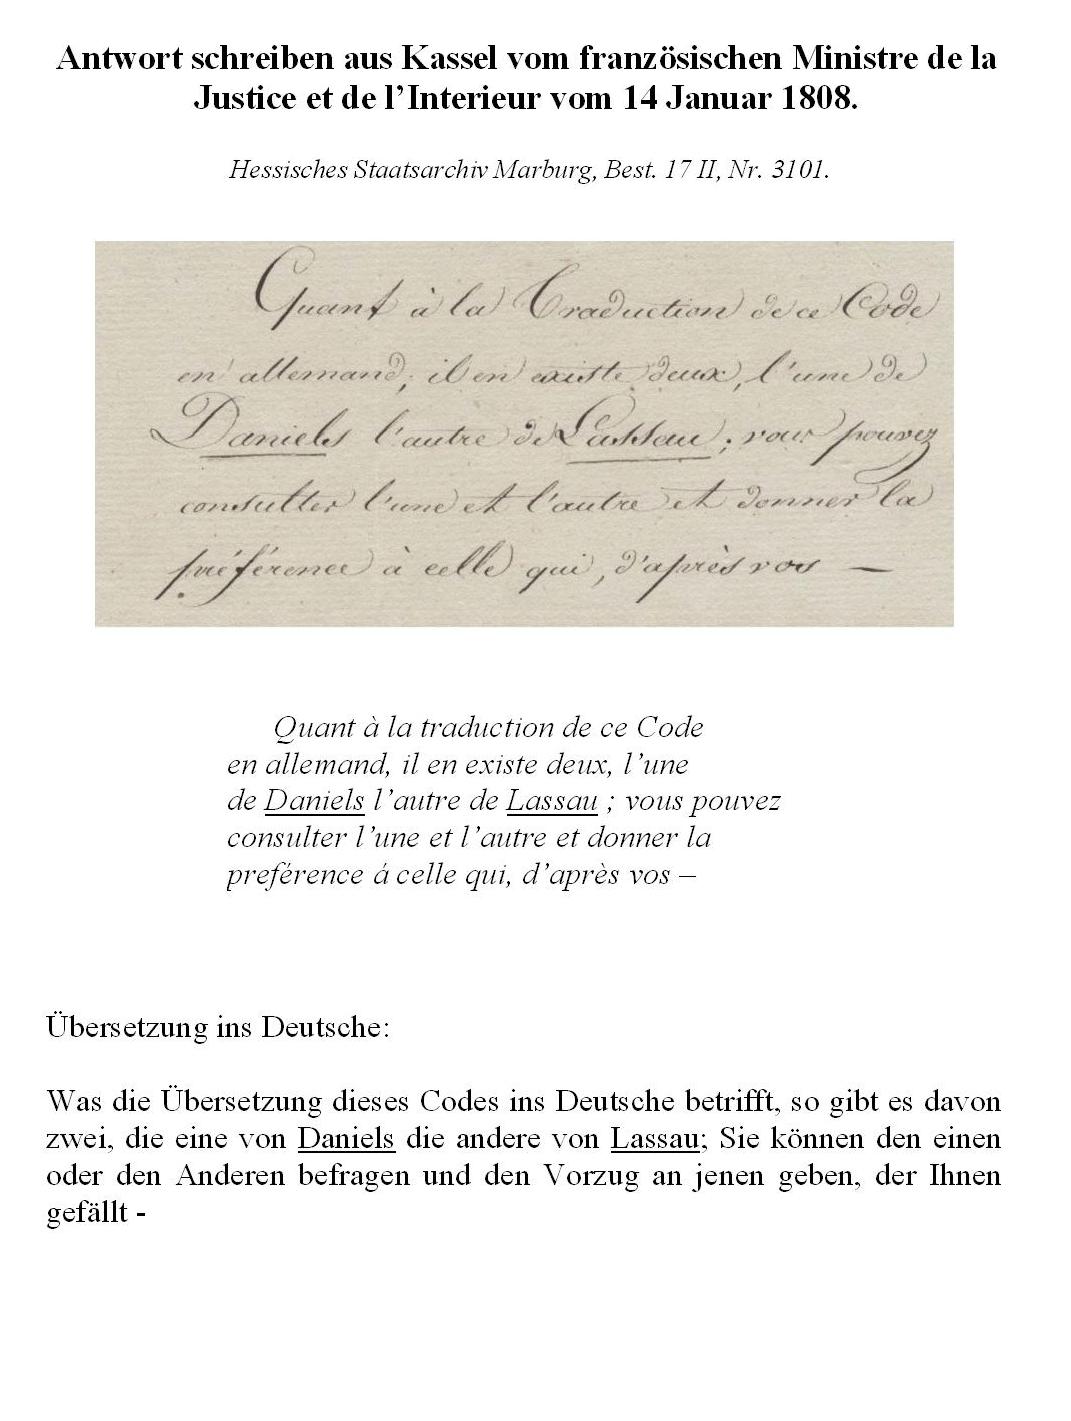 Antwort schreiben aus Kassel vom französischen Ministre de la
Justice et de l’Interieur vom 14 Januar 1808.
Hessisches Staatsarchiv Marburg, Best. 17 II, Nr. 3101.
Quant à la Traduction de ce Code
en allemand; il en existe deux, l'une de
Daniels l'autre de Lassau; vous pouvez
consulter l'une et l'autre et donner la
préférence à celle qui, d'après vos —
Quant à la traduction de ce Code
en allemand, il en existe deux, l’une
de Daniels l’autre de Lassau ; vous pouvez
consulter l’une et l’autre et donner la
preférence á celle qui, d’après vos –
Übersetzung ins Deutsche:
Was die Übersetzung dieses Codes ins Deutsche betrifft, so gibt es davon
zwei, die eine von Daniels die andere von Lassau; Sie können den einen
oder den Anderen befragen und den Vorzug an jenen geben, der Ihnen
gefällt -